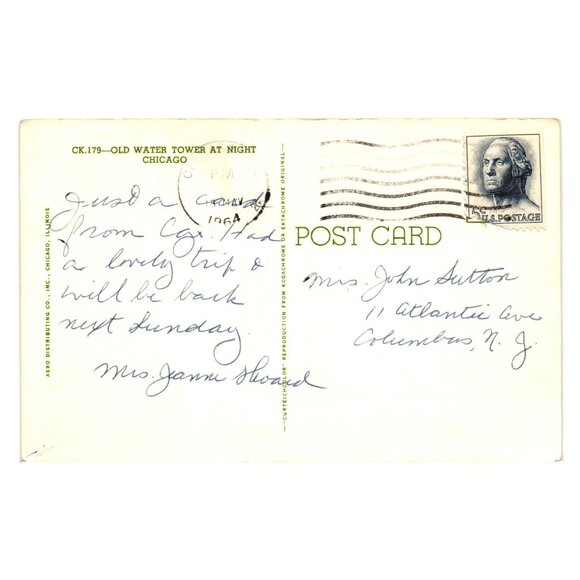 CK.179—OLD WATER TOWER AT NIGHT
CHICAGO
PM
1964
5c U.S. POSTAGE
POST CARD
Just a card
from Cgo. Had
a lovely trip &
will be back
next Sunday.
Mrs. Jeanne
Mrs. John Sutton
11 Atlantic Ave
Columbus, N. J.
AERO DISTRIBUTING CO., INC., CHICAGO, ILLINOIS
"CURTEICHCOLOR" REPRODUCTION FROM KODACHROME OR EKTACHROME ORIGINAL